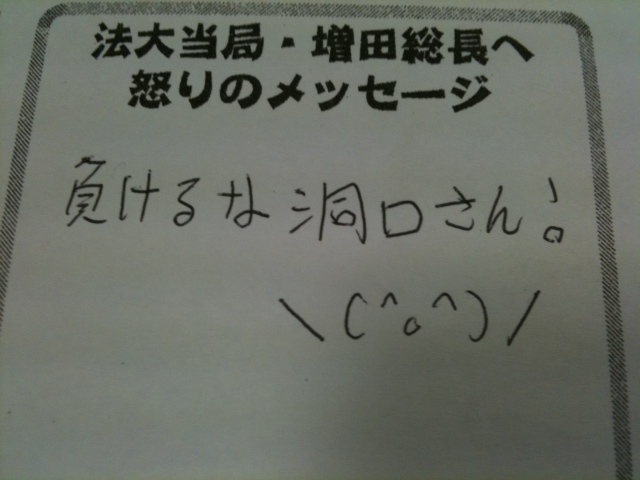 法大当局・増田総長へ
怒りのメッセージ
負けるな 洞口さん!
\(^o^)/